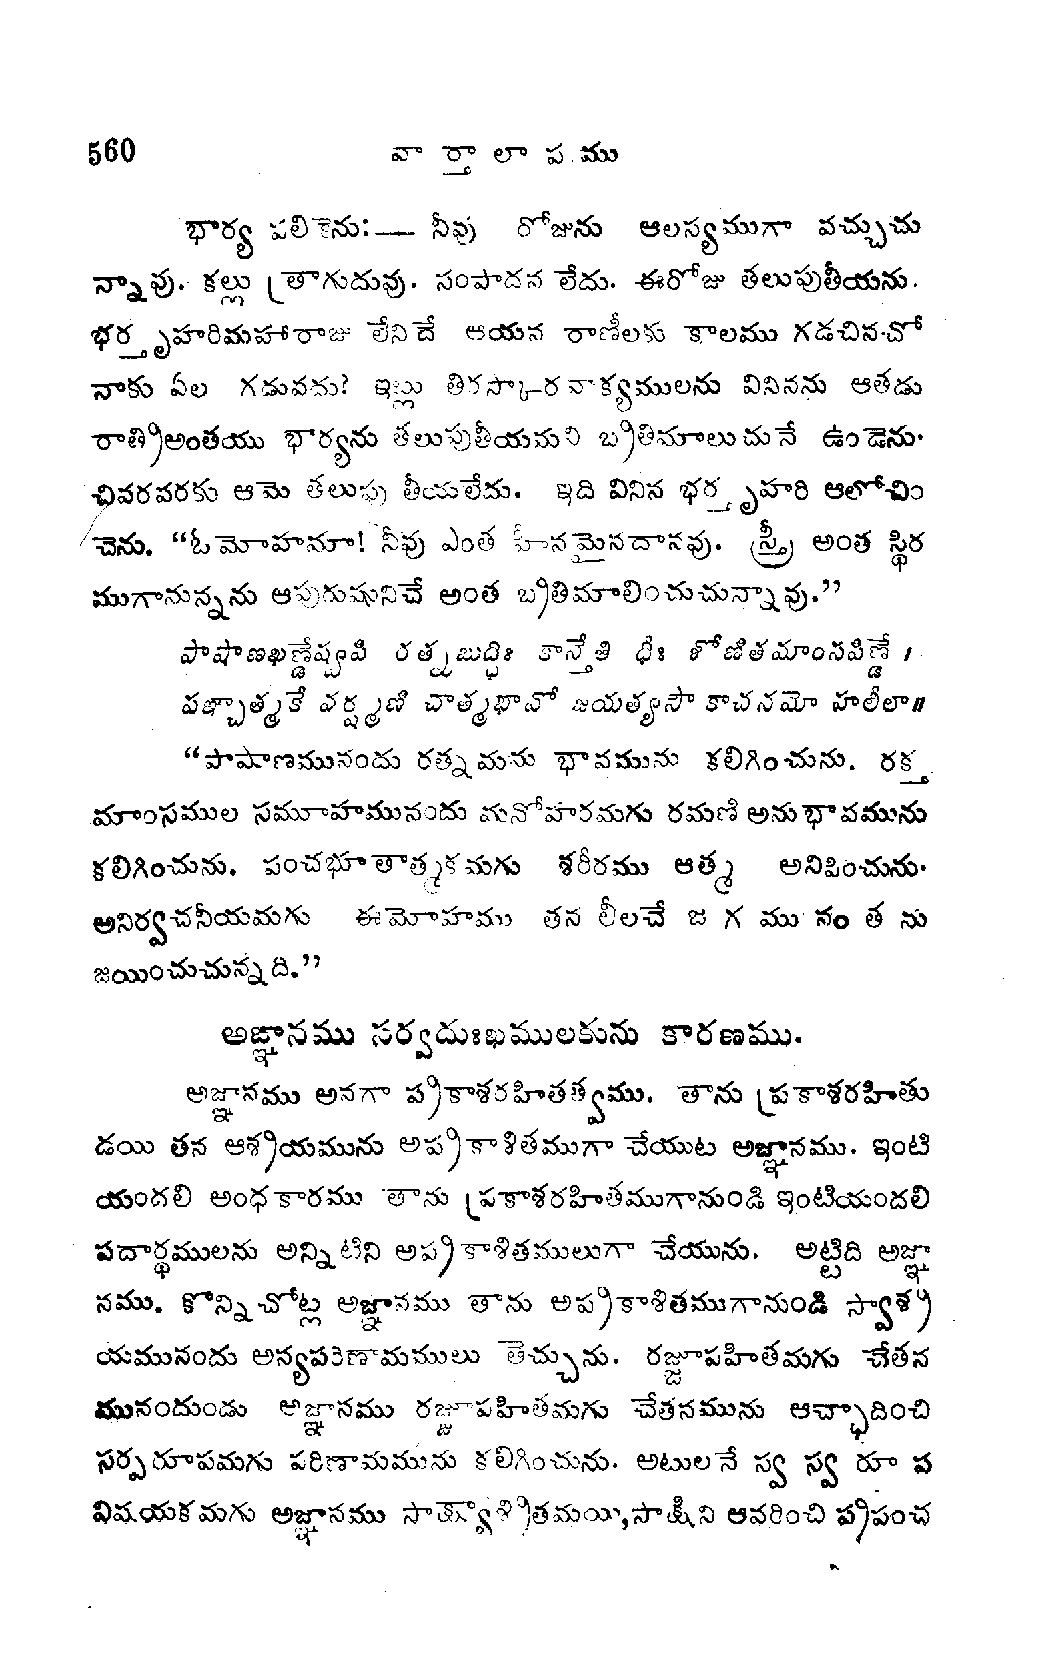 560 వా ర్తా లా ప ము
భార్య పలికెను:— నీవు రోజును ఆలస్యముగా వచ్చుచు
న్నావు. కల్లు త్రాగుదువు. సంపాదన లేదు. ఈరోజు తలుపుతీయను.
భర్తృహరిమహారాజు లేనిదే ఆయన రాణీలకు కాలము గడచిన-చో
నాకు ఏల గడువదు? ఇట్లు తిరస్కార వాక్యములను వినినను ఆతడు
రాత్రిఅంతయు భార్యను తలుపుతీయమని బ్రతిమాలుచునే ఉండెను.
చివరవరకు ఆమె తలుపు తీయలేదు. ఇది వినిన భర్తృహరి ఆలోచిం
చెను. “ఓ మోహమా! నీవు ఎంత హీనమైనదానవు. స్త్రీ అంత స్థిర
ముగానున్నను ఆపురుషునిచే అంత బ్రతిమాలించుచున్నావు.”
పాషాణఖణ్డేష్వపి రత్నబుద్ధిః కాన్తేతి ధీః శోణితమాంసపిణ్డే ।
పఞ్చాత్మకే వర్ష్మణి చాత్మభావో జయత్యసౌ కాచనమో హలీలా॥
“పాషాణమునందు రత్నమను భావమును కలిగించును. రక్త
మాంసముల సమూహమునందు మనోహరమగు రమణి అను భావమును
కలిగించును. పంచభూతాత్మకమగు శరీరము ఆత్మ అనిపించును.
అనిర్వచనీయమగు ఈమోహము తన లీలచే జ గ ము నం త ను
జయించుచున్నది.”
అజ్ఞానము సర్వదుఃఖములకును కారణము.
అజ్ఞానము అనగా ప్రకాశరహితతత్వము. తాను ప్రకాశరహితు
డయి తన ఆశ్రయమును అప్రకాశితముగా చేయుట అజ్ఞానము. ఇంటి
యందలి అంధకారము తాను ప్రకాశరహితముగానుండి ఇంటియందలి
పదార్థములను అన్నిటిని అప్రకాశితములుగా చేయును. అట్టిది అజ్ఞా
నము. కొన్నిచోట్ల అజ్ఞానము తాను అప్రకాశితముగానుండి స్వాశ్ర
యమునందు అన్యపరిణామములు తెచ్చును. రజ్జూపహితమగు చేతన
మునందుండు అజ్ఞానము రజ్జూపహితమగు చేతనమును ఆచ్ఛాదించి
సర్పరూపమగు పరిణామమును కలిగించును. అటులనే స్వ స్వ రూ ప
విషయకమగు అజ్ఞానము సాక్ష్యాశ్రితమయి,సాక్షిని ఆవరించి ప్రపంచ